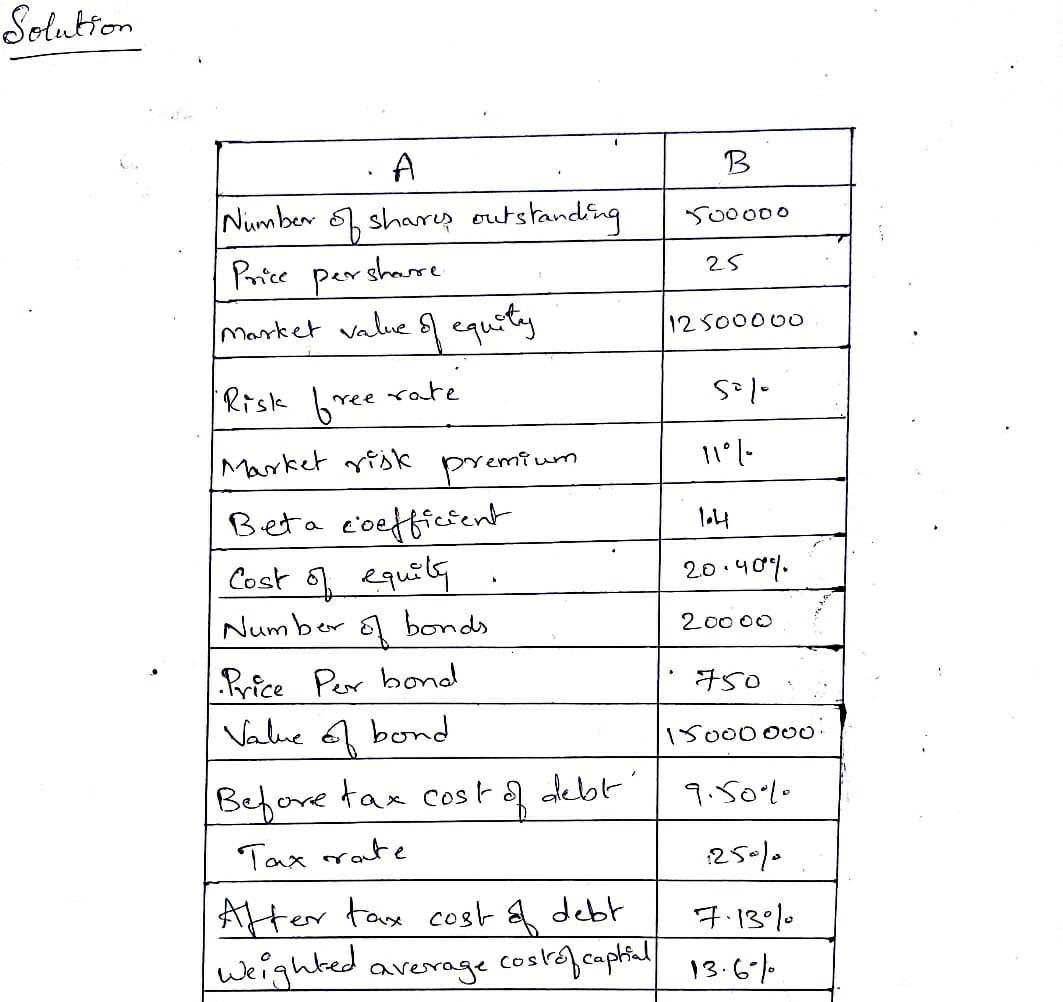 Solution
A B
Number of shares outstanding 500000
Price per share 25
Market value of equity 12500000
Risk free rate 5%
Market risk premium 11%
Beta coefficient 1.4
Cost of equity 20.40%
Number of bonds 20000
Price Per bond 750
Value of bond 15000000
Before tax cost of debt 9.50%
Tax rate 25%
After tax cost of debt 7.13%
Weighted average cost of capital 13.6%